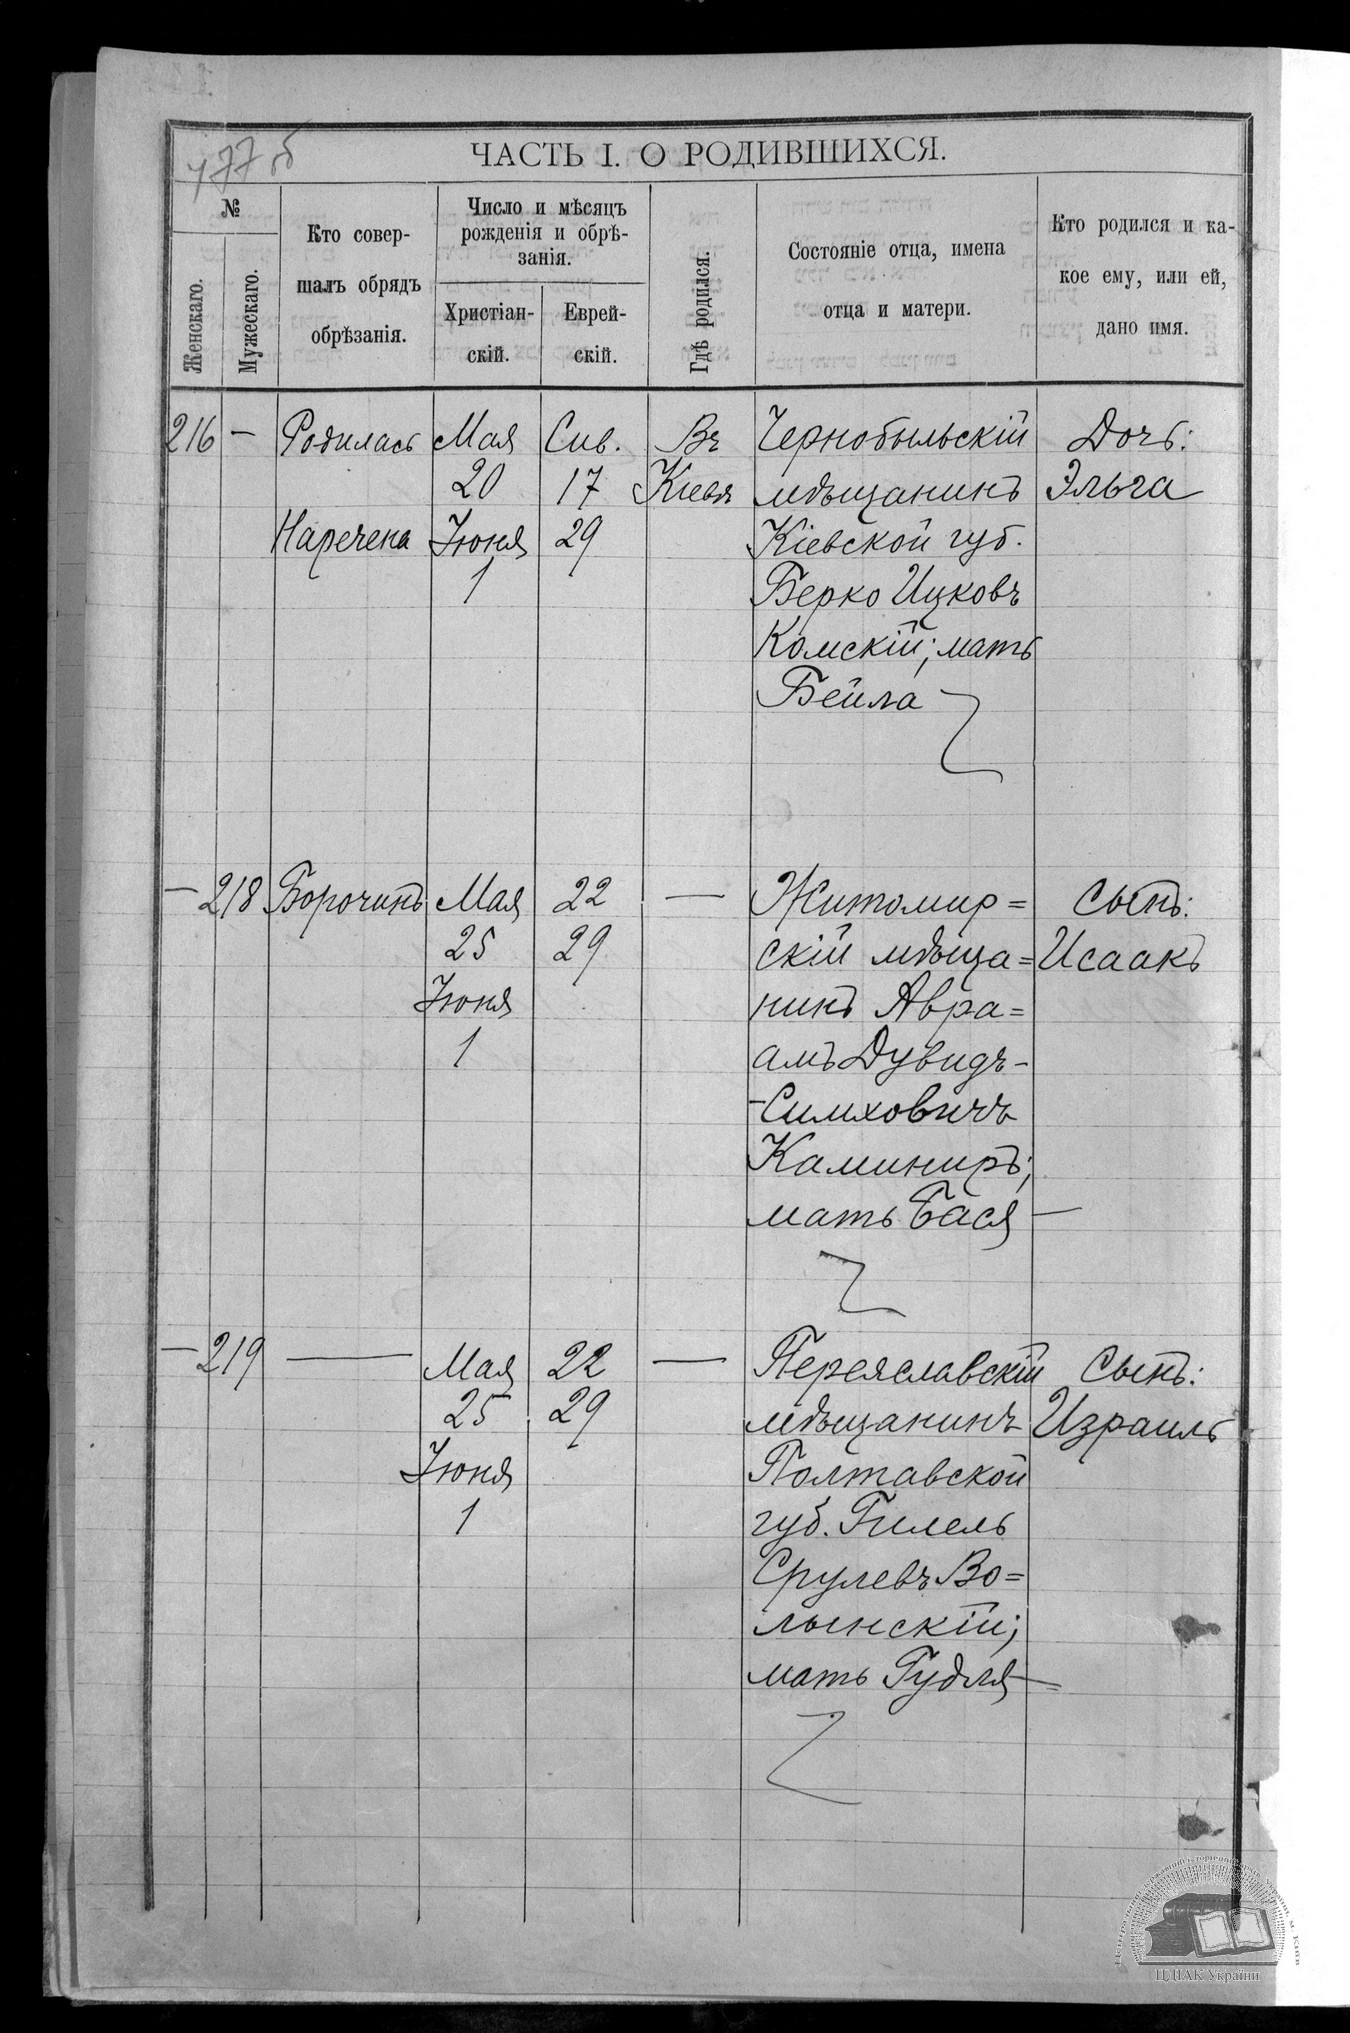 477 об
ЧАСТЬ I. О РОДИВШИХСЯ.
№
Женскаго.
Мужескаго.
Кто совер-
шалъ обрядъ
обрѣзанія.
Число и мѣсяцъ
рожденія и обрѣ-
занія.
Христіан-
скій.
Еврей-
скій.
Гдѣ родился.
Состояніе отца, имена
отца и матери.
Кто родился и ка-
кое ему, или ей,
дано имя.
216 — Родилась Мая Сив. Въ Чернобыльскій Дочь:
20 17 Кіевѣ мѣщанинъ Эльга
Наречена Іюня 29 Кіевской губ.
1 Берко Ицковъ
Комскій; мать
Бейла
— 218 Борочинъ Мая 22 — Житомир= Сынъ:
25 29 скій мѣща= Исаакъ
Іюня нинъ Авра=
1 амъ Дувидъ-
-Симховичъ
Каминиръ;
мать Бася —
— 219 — Мая 22 — Переяславскій Сынъ:
25 29 мѣщанинъ Израиль
Іюня Полтавской
1 губ. Гилель
Срулевъ Во=
лынскій;
мать Гудля —
ЦДІАК України